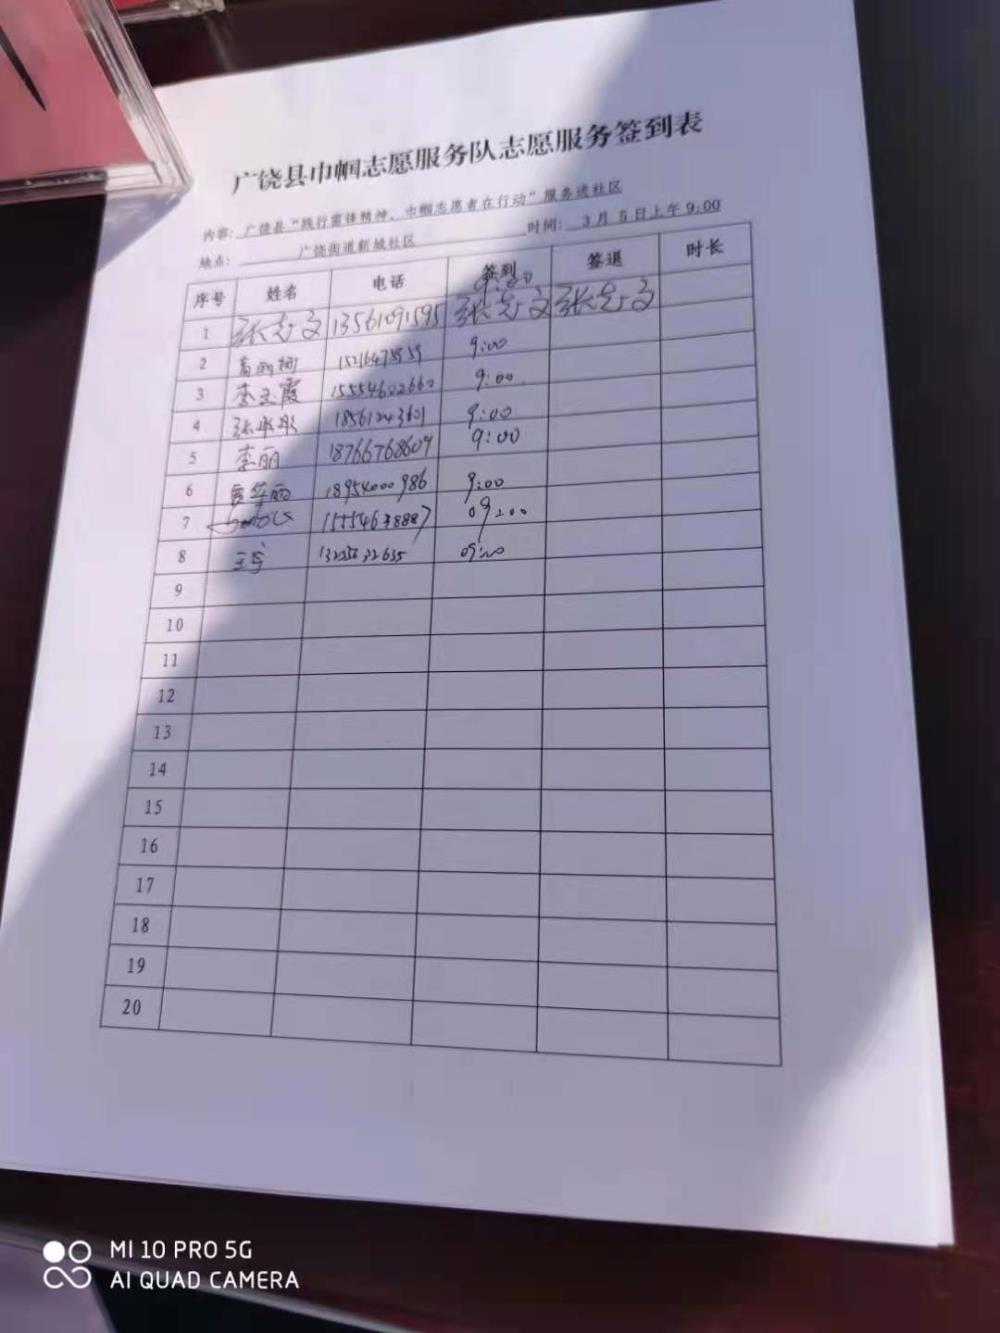 广饶县巾帼志愿服务队志愿服务签到表
内容: 广饶县“践行雷锋精神，巾帼志愿者在行动”服务进社区
地点: 广饶街道新城社区 时间: 3月5日上午9:00
序号 姓名 电话 签到 签退 时长
9:00
1 张志文 13561091595 张志文 张志文
2 9:00
3 李玉霞 15554602660 9:00
4 18561243601 9:00
5 李丽 18766768609 9:00
6 18954000986 9:00
7 15554638887 09:00
8 王宇 13225632635 09:00
9
10
11
12
13
14
15
16
17
18
19
20
MI 10 PRO 5G
AI QUAD CAMERA